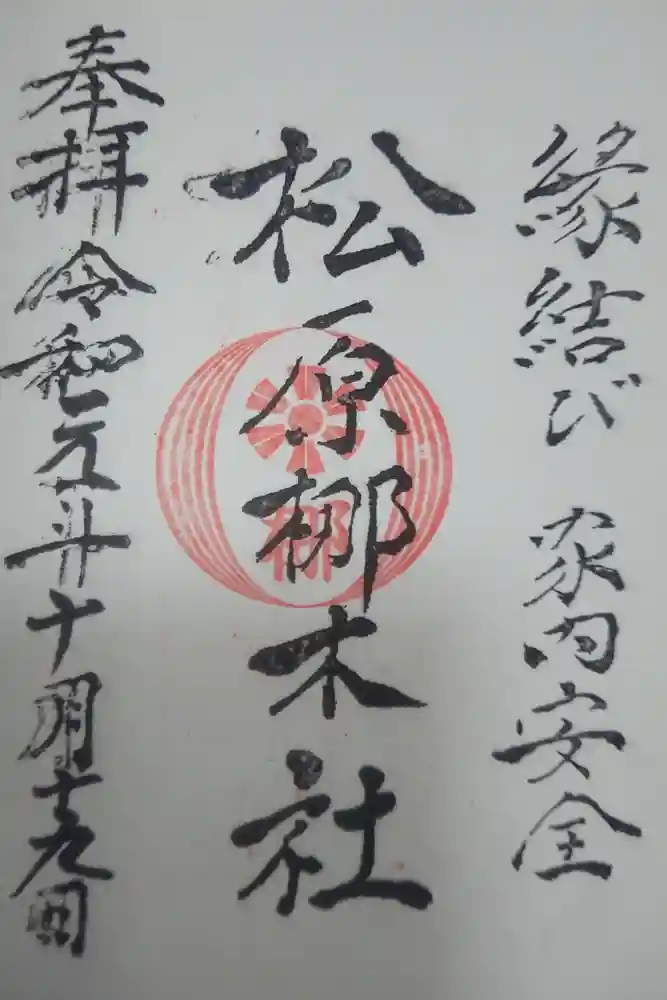 縁結び 家内安全
松原梛木社
梛
奉拝 令和元年十月十九日